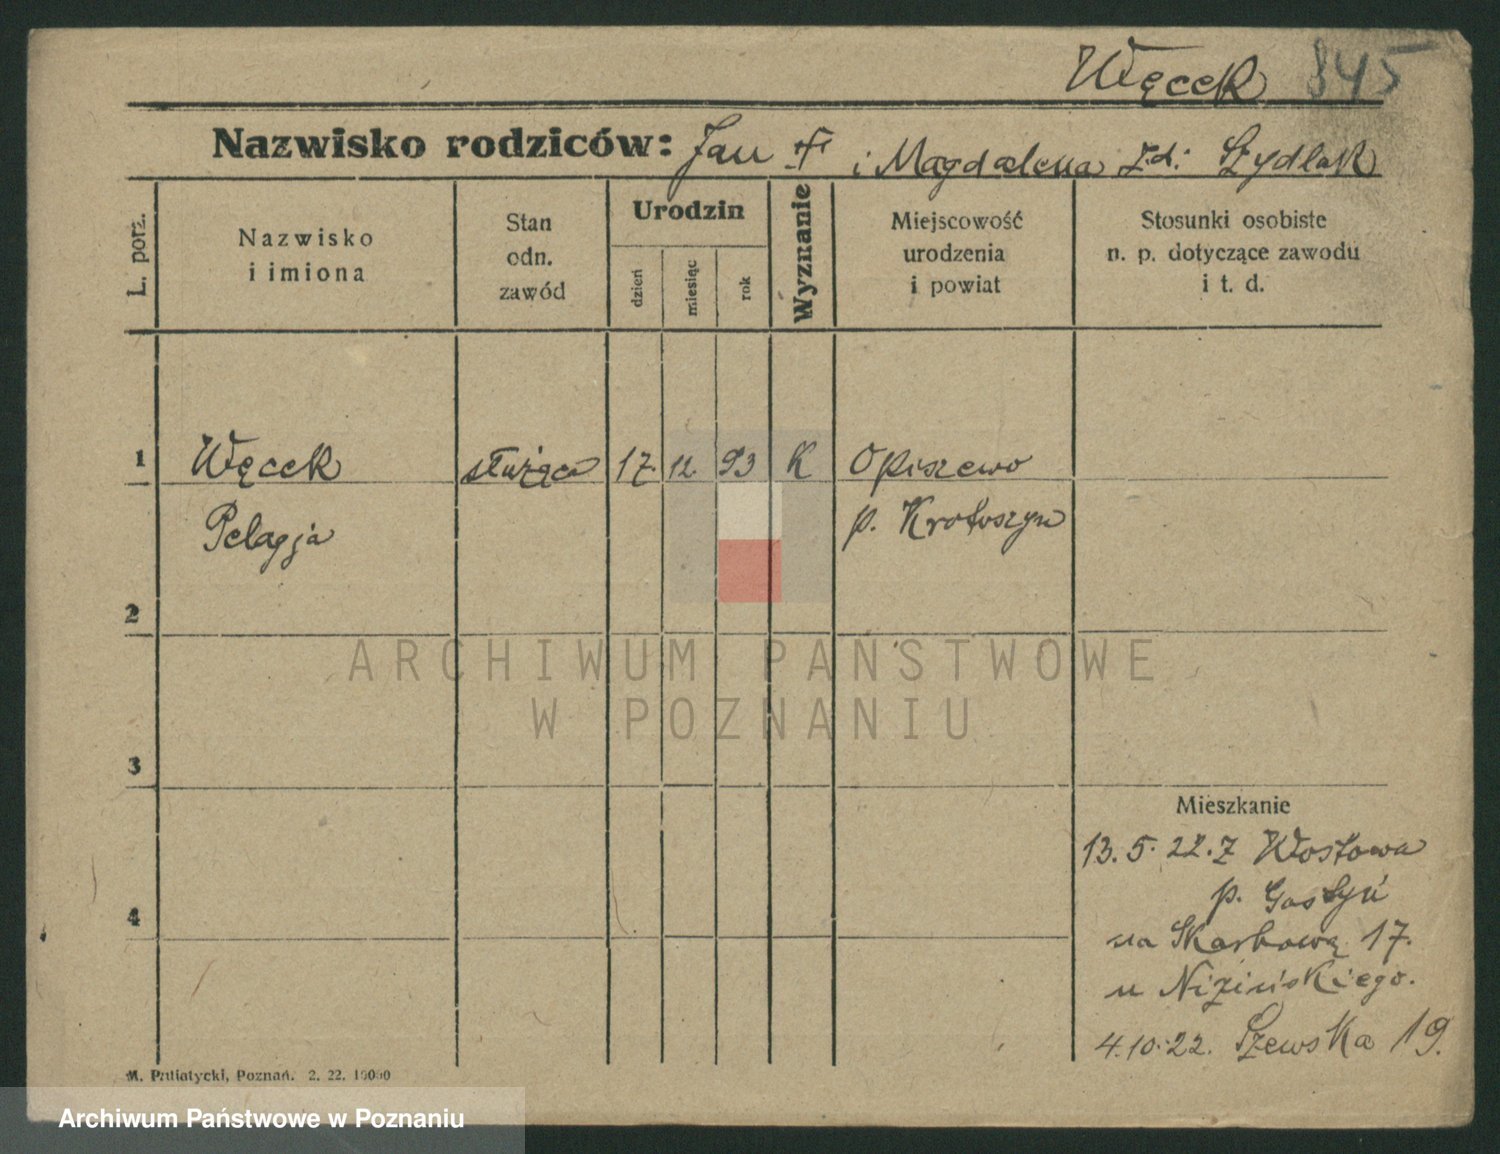 Węcek 845
Nazwisko rodziców: Jan ✝ i Magdalena zd: Szydlak
L. porz.
Nazwisko
i imiona
Stan
odn.
zawód
Urodzin
dzień
miesiąc
rok
Wyznanie
Miejscowość
urodzenia
i powiat
Stosunki osobiste
n. p. dotyczące zawodu
i t. d.
1 Węcek służąca 17. 12. 93 K Opiszewo
Pelagja p. Krotoszyn
2
ARCHIWUM PAŃSTWOWE
W POZNANIU
3
Mieszkanie
13. 5. 22. z Włostowa
p. Gostyń
4
na Skarbową 17.
u Nizińskiego.
4.10.22. Szewska 19.
M. Putiatycki, Poznań. 2. 22. 10000
Archiwum Państwowe w Poznaniu